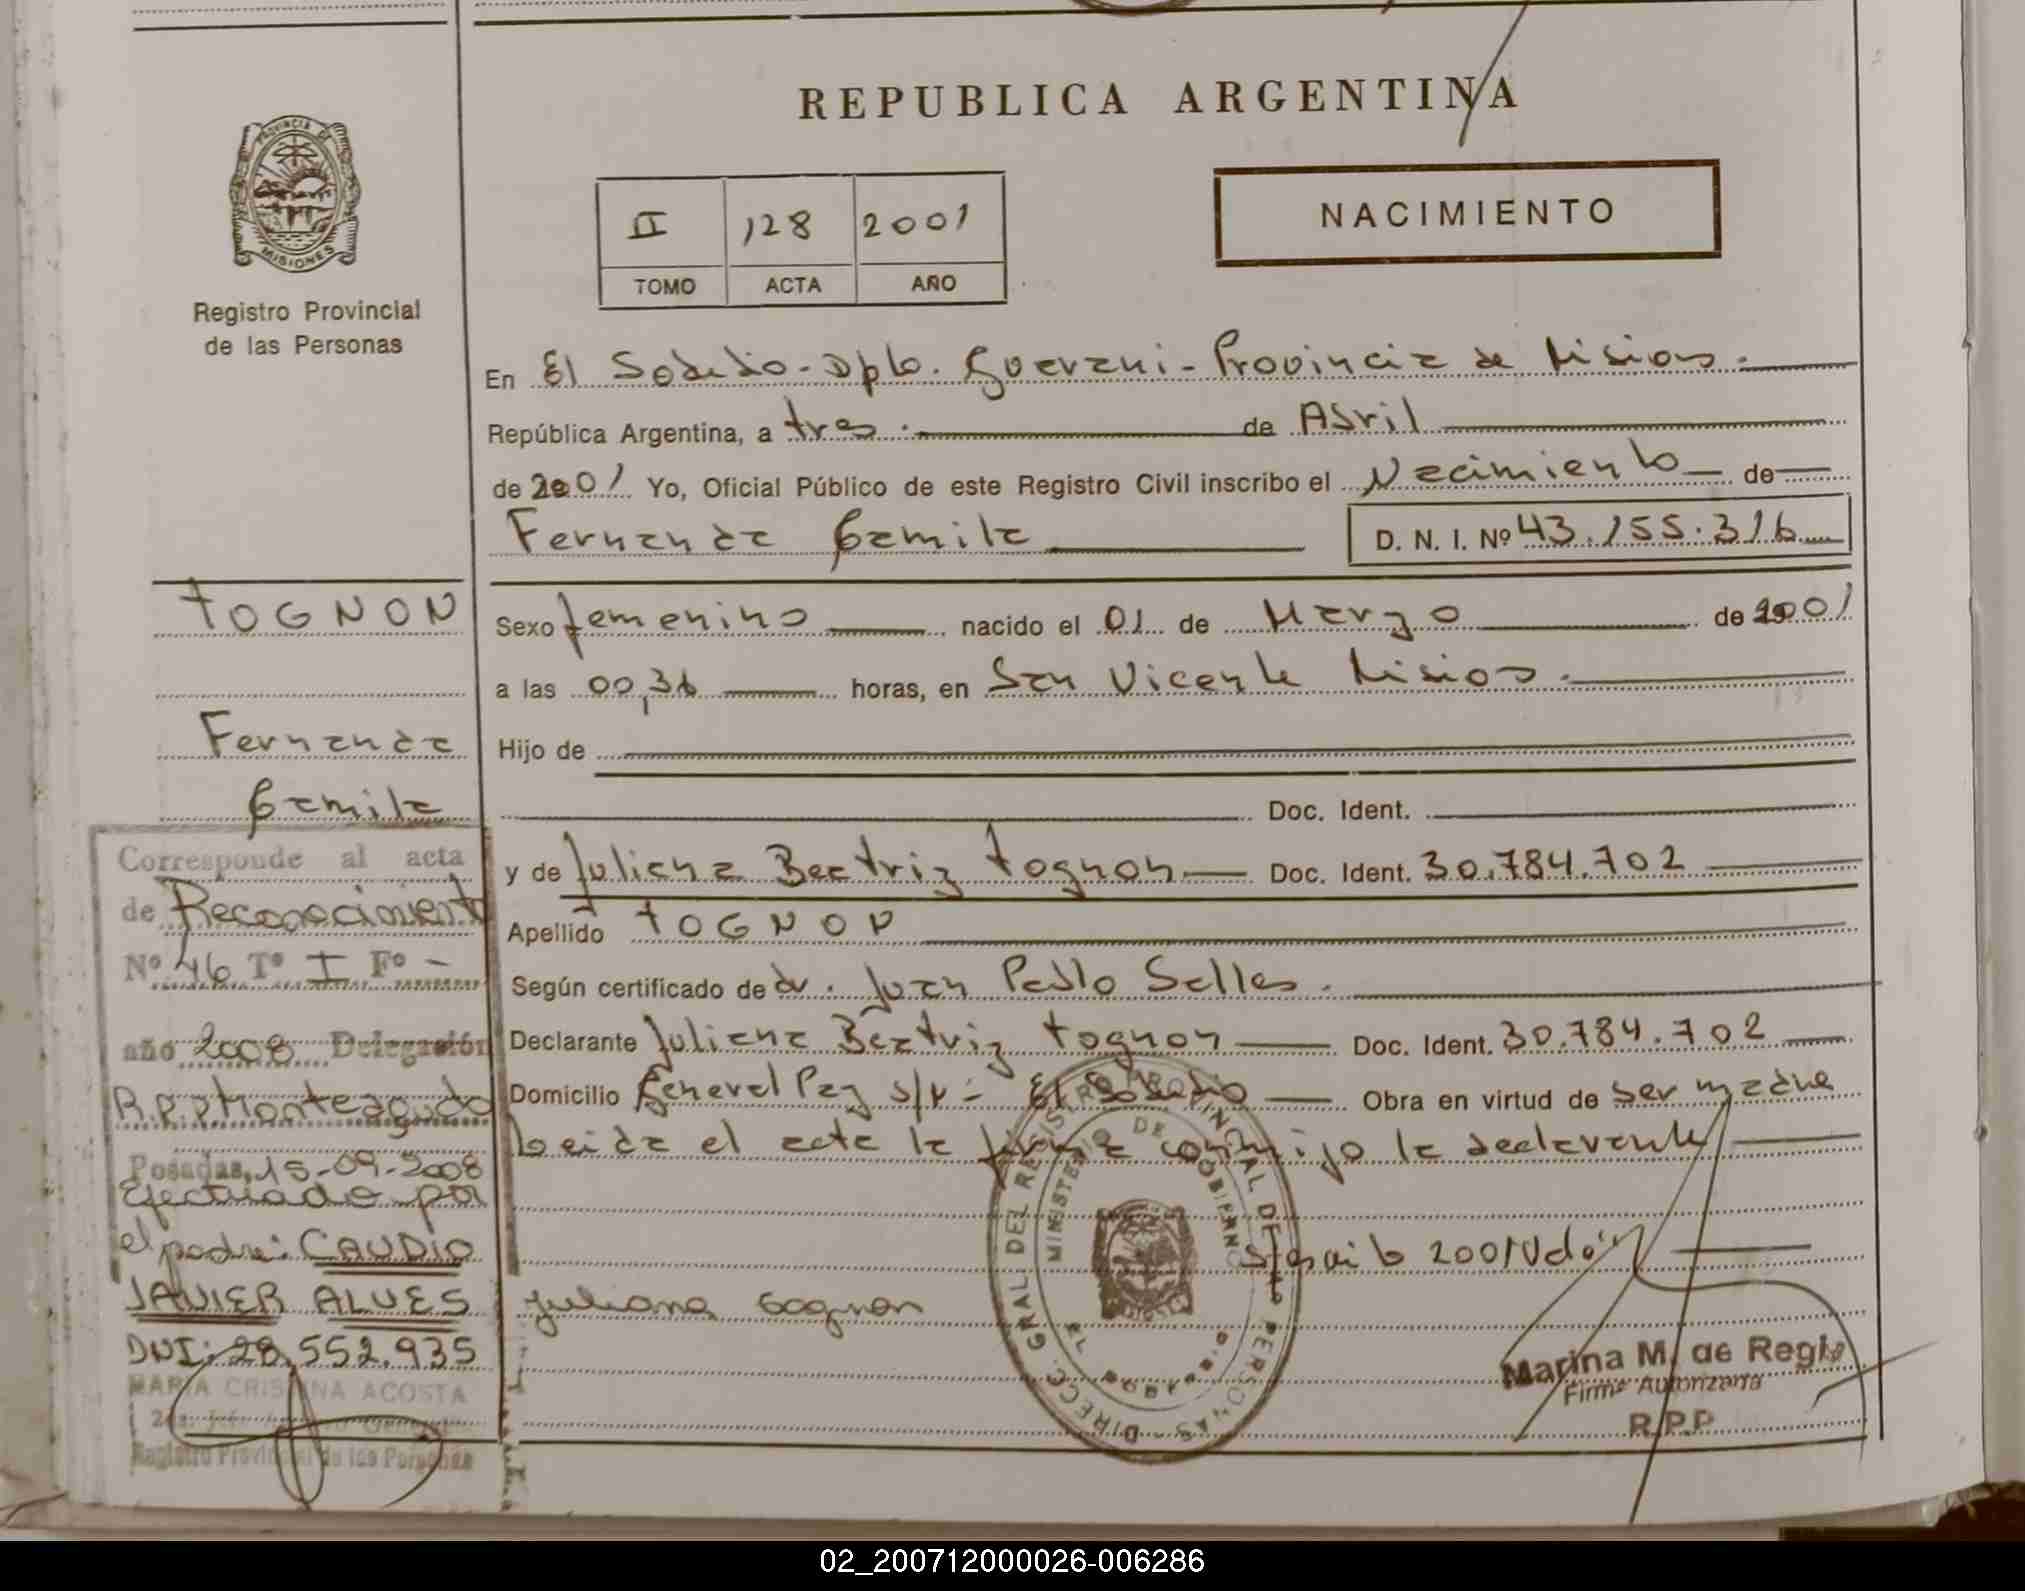 REPUBLICA ARGENTINA
PROVINCIA DE
MISIONES
Registro Provincial
de las Personas
II 128 2001
TOMO ACTA AÑO
NACIMIENTO
En El Soberbio - Dpto. Guarani - Provincia de Misiones.
República Argentina, a tres. de Abril
de 2001 Yo, Oficial Público de este Registro Civil inscribo el Nacimiento de
Fernanda Camila D. N. I. Nº 43.155.316
TOGNON
Fernanda
Camila
Sexo femenino nacido el 01 de Marzo de 2001
a las 00,36 horas, en San Vicente Misiones.
Hijo de
Doc. Ident.
y de Juliana Beatriz Tognon Doc. Ident. 30.784.702
Apellido TOGNON
Según certificado de dr. Juan Pablo Salles.
Declarante Juliana Beatriz Tognon Doc. Ident. 30.784.702
Domicilio General Paz s/n - El Soberbio Obra en virtud de ser madre
Leida el acta la firma conmigo la declarante
2001
juliana tognon
Marina M. de Regis
Firma Autorizada
R.P.P
DIRECC. GRAL DEL REGISTRO PROVINCIAL DE LAS PERSONAS
MINISTERIO DE GOBIERNO
Corresponde al acta
de Reconocimiento
Nº 46 Tº I Fº -
año 2008 Delegación
R.P.P Monteagudo
Posadas, 15-09-2008
Efectuado por
el padre: CAUDIO
JAVIER ALVES
DNI: 28.552.935
MARIA CRISTINA ACOSTA
Registro Provincial de las Personas
02_200712000026-006286